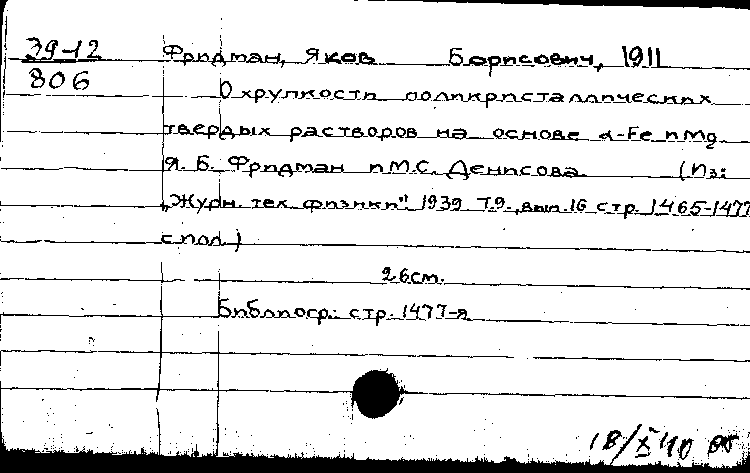 39-12
806
Фридман, Яков Борисович, 1911
О хрупкости поликристаллических
твердых растворов на основе α-Fe и Mg.
Я. Б. Фридман и М.С. Денисова. (Из:
"Журн. тех. физики" 1939 Т.9., вып. 16 стр. 1465-1477
с пол.)
26 см.
Библиогр.: стр. 1477-я
18/X 40